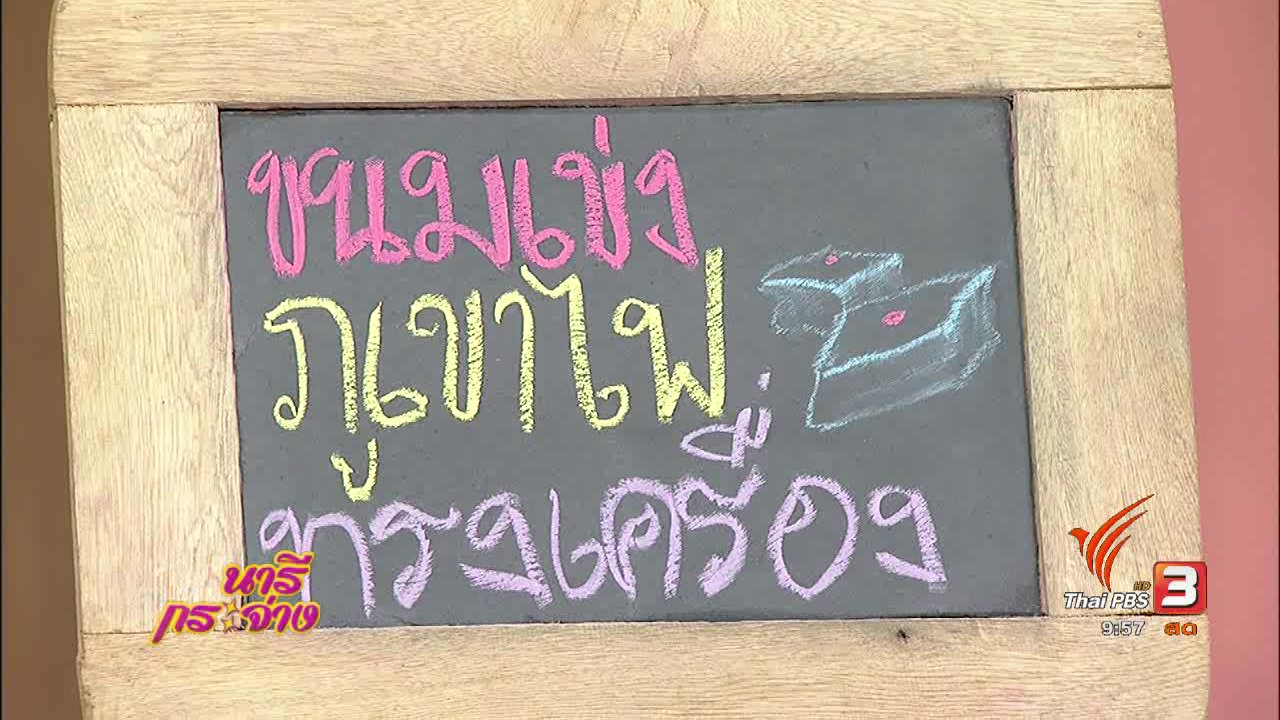 ขนมเข่ง
ภูเขาไฟ
ทรงเครื่อง
นารี
กระจ่าง
HD
Thai PBS 3
9:57 สด